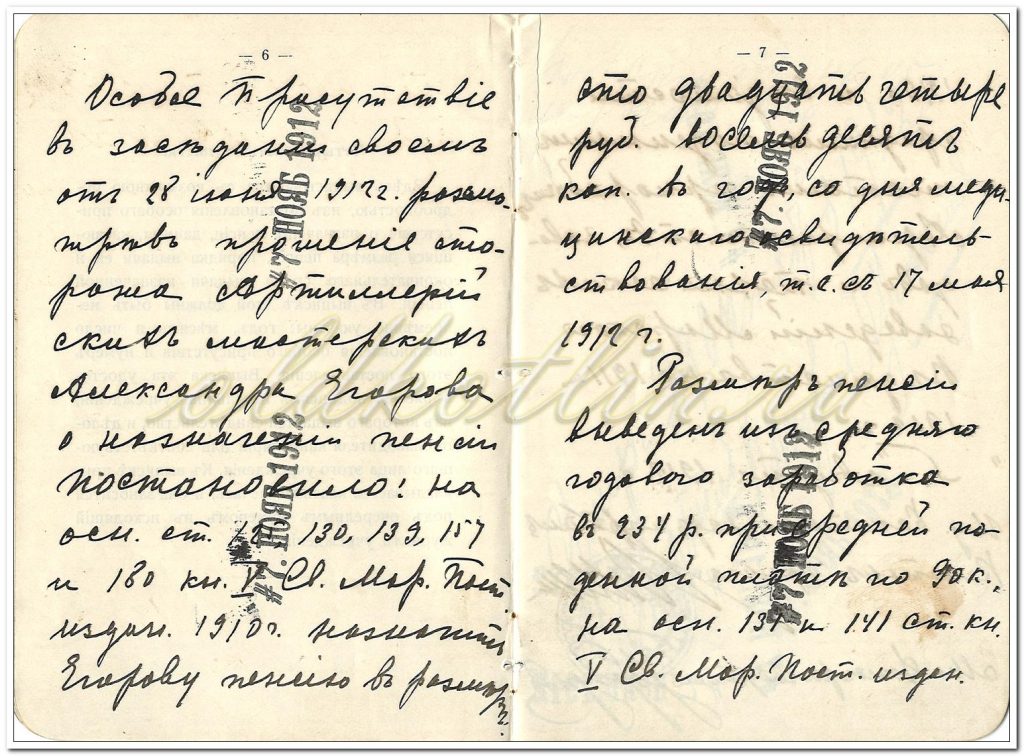 — 6 —
Особое Присутствіе
въ засѣданіи своемъ
отъ 28 іюня 1912 г. разсмо-
трѣвъ прошеніе сто-
рожа Артиллерій
скихъ мастерскихъ
Александра Егорова
о назначеніи пенсіи
постановило: на
осн. ст. 130, 139, 157
и 180 кн. V Св. Мор. Пост.
издан. 1910 г. назначить
Егорову пенсію въ размѣрѣ
— 7 —
сто двадцать четыре
руб. восемьдесятъ
коп. въ годъ, со дня меди-
цинскаго освидѣтель-
ствованія, т.е. съ 17 мая
1912 г.
Размѣръ пенсіи
выведенъ изъ средняго
годового заработка
въ 234 р. при средней по-
денной платѣ по 90 к.,
на осн. 137 и 141 ст. кн.
V Св. Мор. Пост. издан.
#7. НОЯБ 1912
#7. НОЯБ 1912
#7. НОЯБ 1912
#7. НОЯБ 1912
oldkotlin.ru